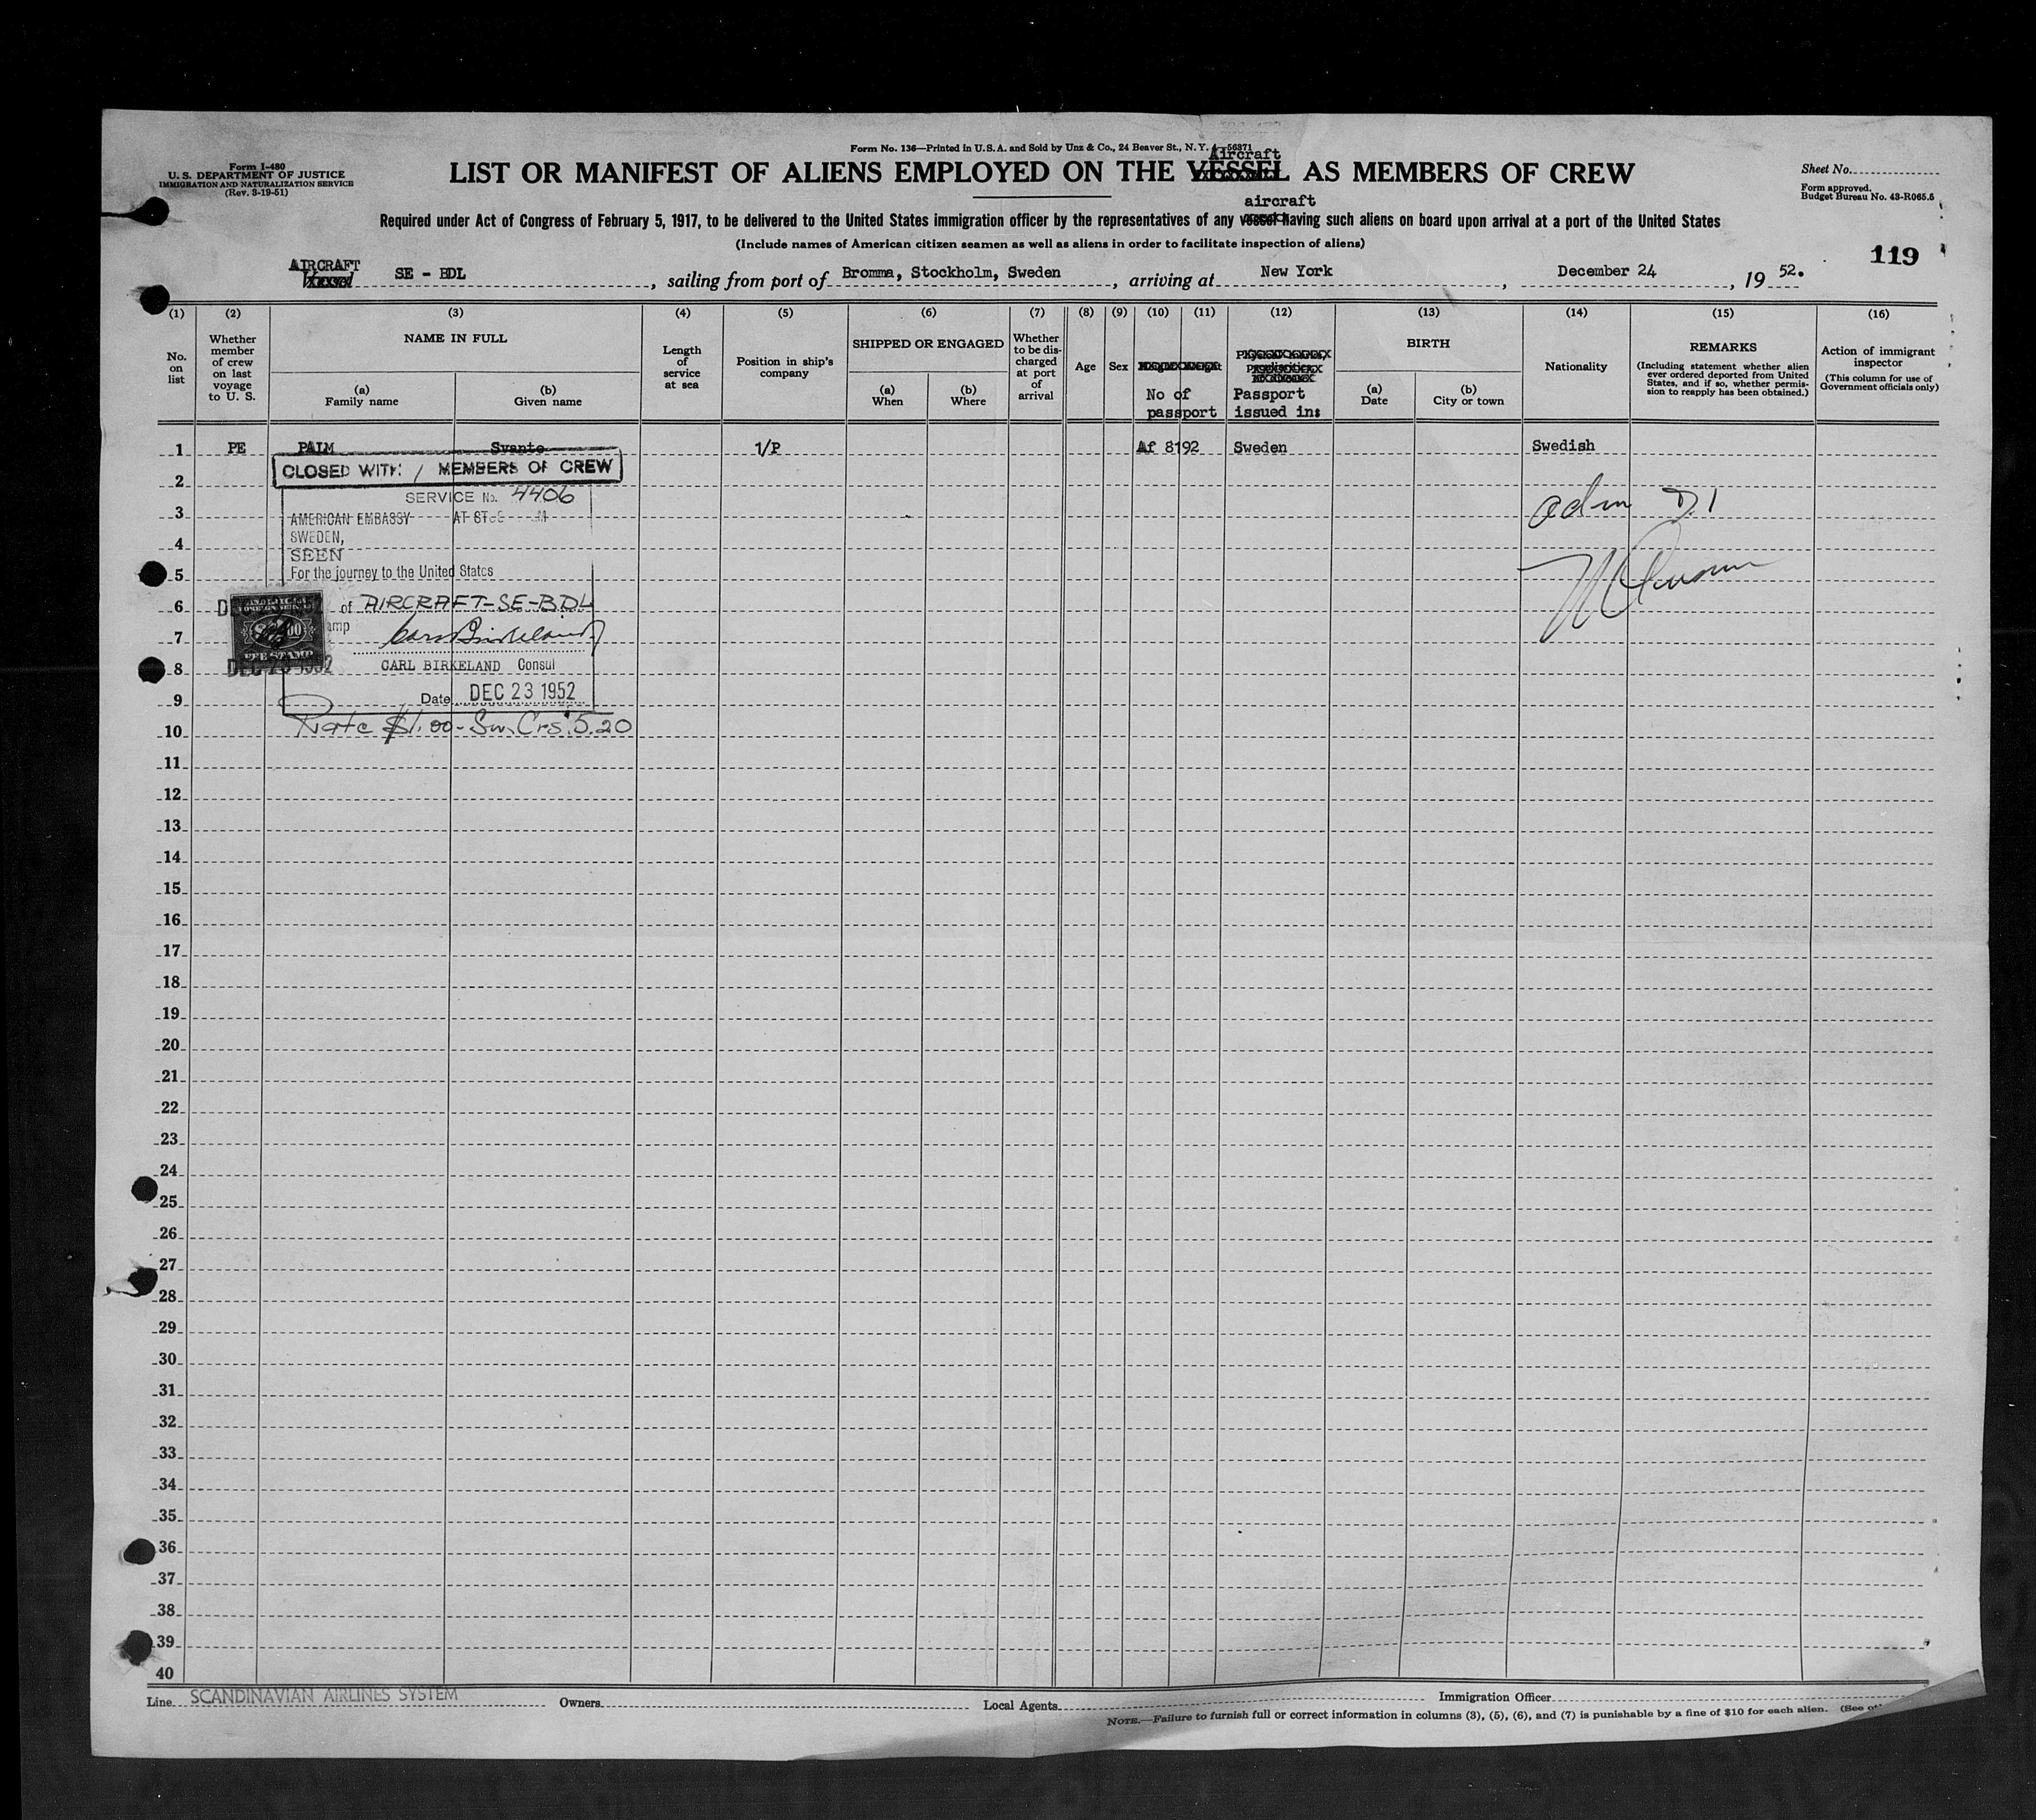 Form No. 136—Printed in U.S.A. and Sold by Unz & Co., 24 Beaver St., N. Y. 4—56371
Form I-480
U. S. DEPARTMENT OF JUSTICE
IMMIGRATION AND NATURALIZATION SERVICE
(Rev. 3-19-51)
Aircraft
LIST OR MANIFEST OF ALIENS EMPLOYED ON THE VESSEL AS MEMBERS OF CREW
Sheet No.
Form approved.
Budget Bureau No. 43-R065.5
aircraft
Required under Act of Congress of February 5, 1917, to be delivered to the United States immigration officer by the representatives of any vessel having such aliens on board upon arrival at a port of the United States
(Include names of American citizen seamen as well as aliens in order to facilitate inspection of aliens)
119
AIRCRAFT
Vessel SE - BDL, sailing from port of Bromma, Stockholm, Sweden, arriving at New York, December 24, 19 52.
(1) (2) (3) (4) (5) (6) (7) (8) (9) (10) (11) (12) (13) (14) (15) (16)
No. on list
Whether member of crew on last voyage to U. S.
NAME IN FULL
(a) Family name
(b) Given name
Length of service at sea
Position in ship's company
SHIPPED OR ENGAGED
(a) When
(b) Where
Whether to be discharged at port of arrival
Age
Sex
No of passport
Passport issued in:
BIRTH
(a) Date
(b) City or town
Nationality
REMARKS
(Including statement whether alien ever ordered deported from United States, and if so, whether permission to reapply has been obtained.)
Action of immigrant inspector
(This column for use of Government officials only)
1 PE PALM Svante 1/P Af 8192 Sweden Swedish
CLOSED WITH 1 MEMBERS OF CREW
2
SERVICE No. 4406
adm D.1
3
AMERICAN EMBASSY AT
SWEDEN,
4
SEEN
5
For the journey to the United States
6
of AIRCRAFT-SE-BDL
7
FEE STAMP
8
DEC 23 1952
CARL BIRKELAND Consul
9
Date DEC 23 1952
10
Rate $1.00 - Sw. Crs. 5.20
11
12
13
14
15
16
17
18
19
20
21
22
23
24
25
26
27
28
29
30
31
32
33
34
35
36
37
38
39
40
Line SCANDINAVIAN AIRLINES SYSTEM Owners Local Agents Immigration Officer
NOTE.—Failure to furnish full or correct information in columns (3), (5), (6), and (7) is punishable by a fine of $10 for each alien. (See